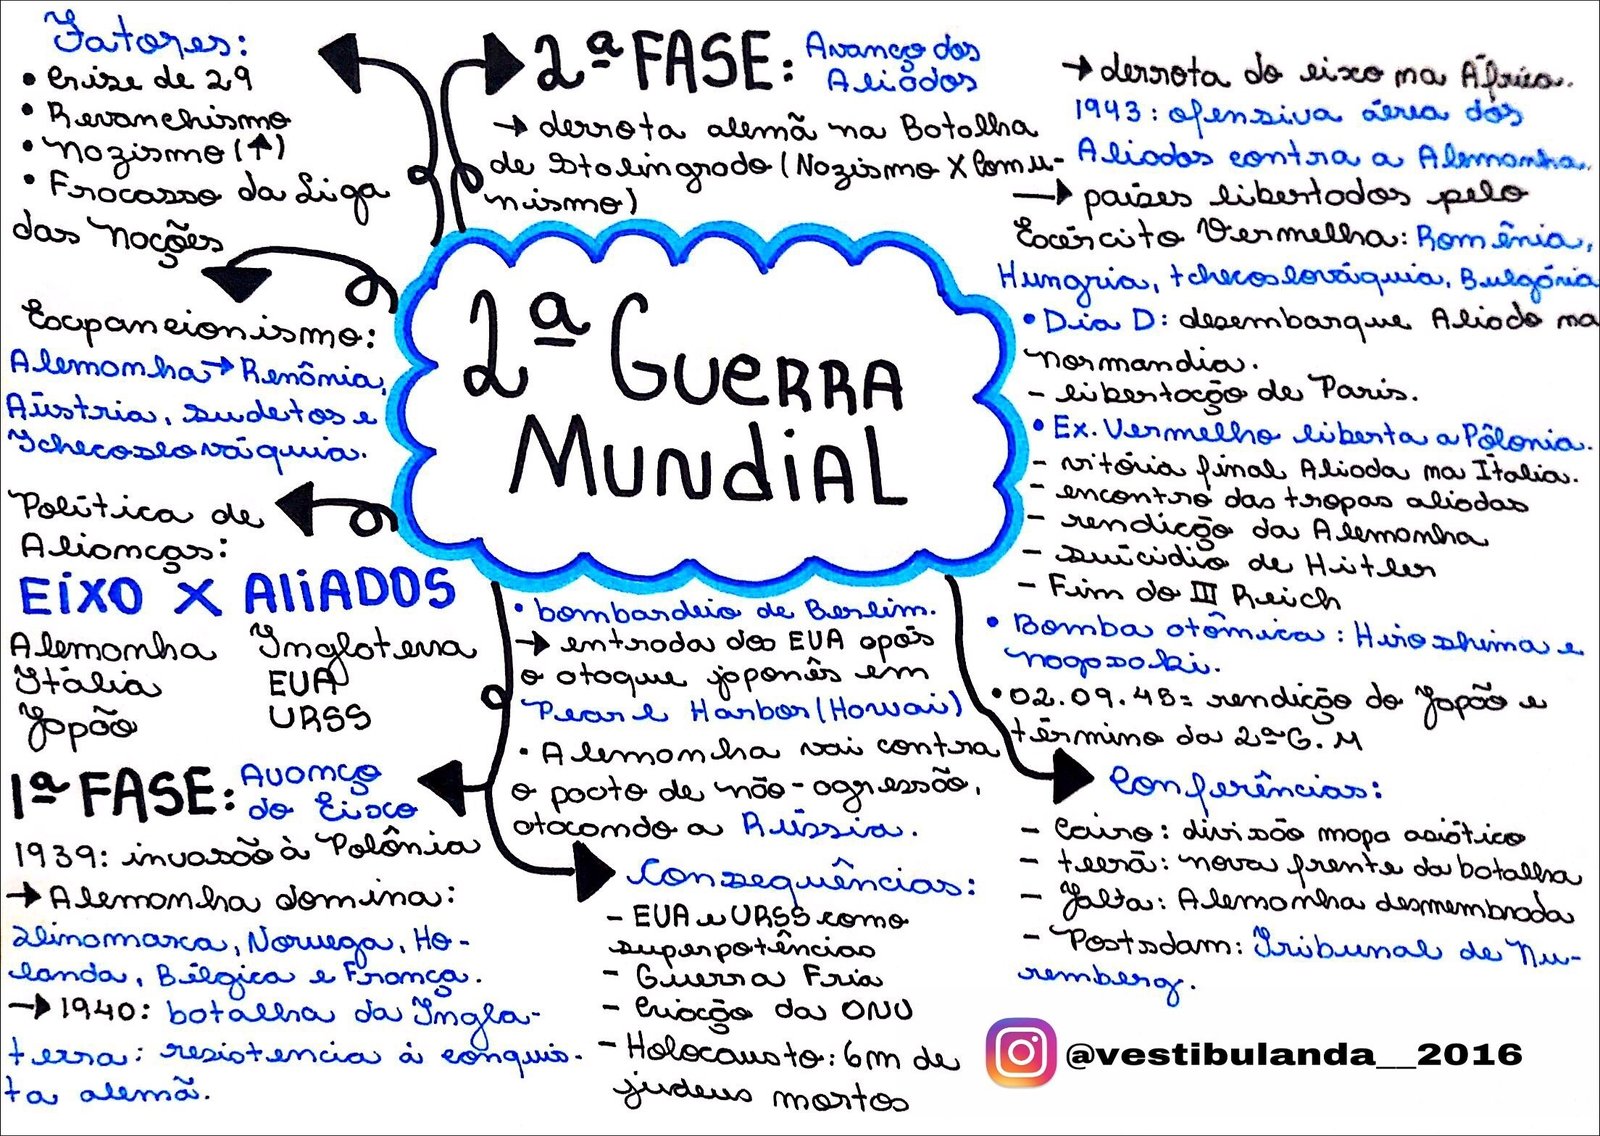 Fatores:
• Crise de 29
• Revanchismo
• Nazismo (↑)
• Fracasso da Liga
das Nações
Expansionismo:
Alemanha → Renânia,
Aústria, sudetos e
Tchecoslováquia.
Política de
Alianças:
EIXO X ALIADOS
Alemanha Inglaterra
Itália EUA
Japão URSS
1ª FASE: Avanço
do Eixo
1939: invasão à Polônia
→ Alemanha domina:
Dinamarca, Noruega, Ho-
landa, Bélgica e França.
→ 1940: batalha da Ingla-
terra: resistencia à conquis-
ta alemã.
2ª FASE: Avanço dos
Aliados
→ derrota alemã na Batalha
de Stalingrado (Nazismo X Comu-
nismo)
2ª GUERRA
MUNDIAL
• bombardeio de Berlim.
→ entrada dos EUA após
o ataque japonês em
Pearl Harbor (Hawai)
• Alemanha vai contra
o pacto de não-agressão,
atacando a Rússia.
Consequências:
- EUA e URSS como
superpotências
- Guerra Fria
- Criação da ONU
- Holocausto: 6m de
judeus mortos
→ derrota do eixo na África.
1943: ofensiva áerea dos
Aliados contra a Alemanha.
→ países libertados pelo
Exército Vermelho: Romênia,
Hungria, tchecoslováquia, Bulgária
• Dia D: desembarque Aliado na
normandia.
- libertação de Paris.
• Ex. Vermelho liberta a Pôlonia.
- vitória final Aliada na Itália.
- encontro das tropas aliadas
- rendição da Alemanha
- suicídio de Hitler
- Fim do III Reich
• Bomba atômica: Hiroshima e
nagasaki.
• 02.09.45= rendição do Japão e
término da 2ª G.M
Conferências:
- Cairo: divisão mapa asiático
- teerã: nova frente da batalha
- Yalta: Alemanha desmembrada
- Postsdam: Tribunal de Nu-
remberg.
@vestibulanda__2016